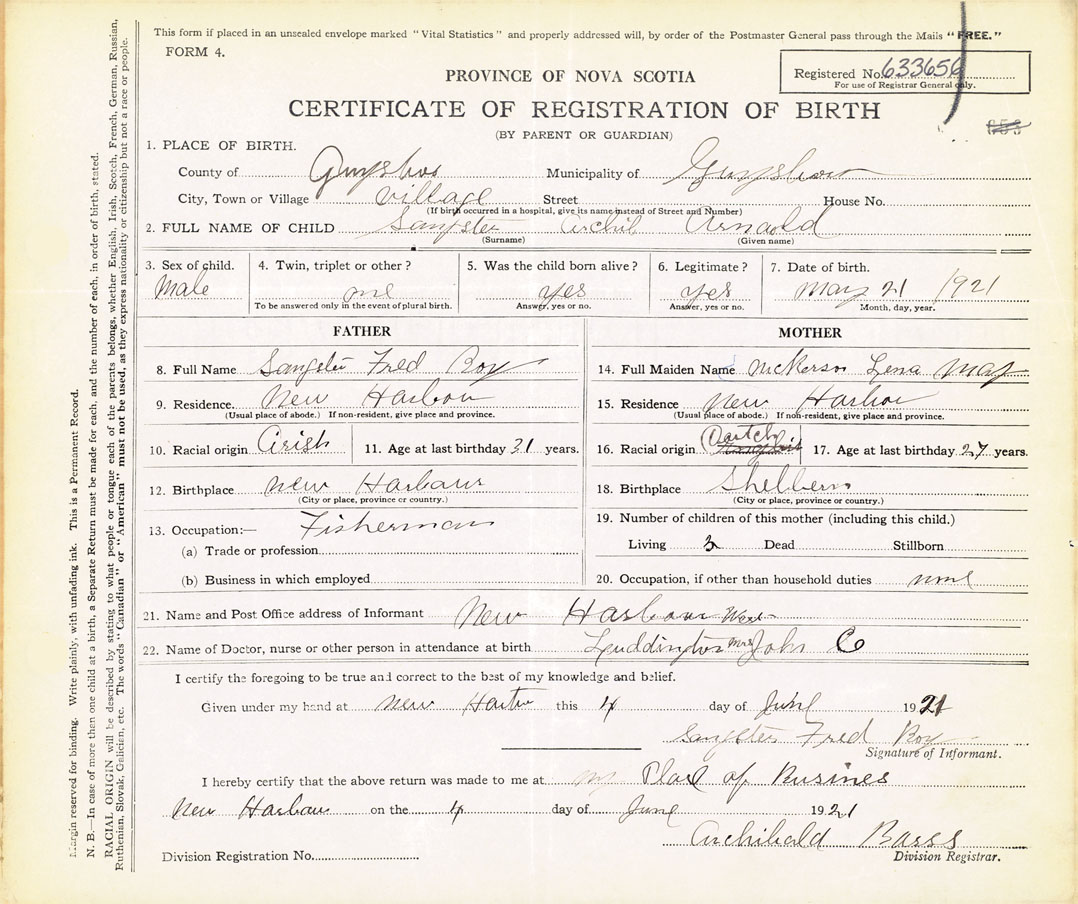 This form if placed in an unsealed envelope marked "Vital Statistics" and properly addressed will, by order of the Postmaster General pass through the Mails "FREE."
FORM 4.
PROVINCE OF NOVA SCOTIA
Registered No. 633656
For use of Registrar General only.
CERTIFICATE OF REGISTRATION OF BIRTH
(BY PARENT OR GUARDIAN)
1. PLACE OF BIRTH.
County of Guysboro Municipality of Guysboro
City, Town or Village village Street House No.
(If birth occurred in a hospital, give its name instead of Street and Number)
2. FULL NAME OF CHILD Sangster Archil Arnold
(Surname) (Given name)
3. Sex of child. 4. Twin, triplet or other? 5. Was the child born alive? 6. Legitimate? 7. Date of birth.
Male one yes yes May 21 1921
To be answered only in the event of plural birth. Answer, yes or no. Answer, yes or no. Month, day, year.
FATHER
8. Full Name Sangster Fred Roy
9. Residence. New Harbour
(Usual place of abode.) If non-resident, give place and province.
10. Racial origin Arish 11. Age at last birthday 31 years.
12. Birthplace New Harbour
(City or place, province or country.)
13. Occupation:— Fisherman
(a) Trade or profession
(b) Business in which employed
MOTHER
14. Full Maiden Name Lena May
15. Residence New Harbor
(Usual place of abode.) If non-resident, give place and province.
16. Racial origin Duitch 17. Age at last birthday 27 years.
18. Birthplace Shelbern
(City or place, province or country.)
19. Number of children of this mother (including this child.)
Living 3 Dead Stillborn
20. Occupation, if other than household duties none
21. Name and Post Office address of Informant New Harbour West
22. Name of Doctor, nurse or other person in attendance at birth Luddington Mrs John C
I certify the foregoing to be true and correct to the best of my knowledge and belief.
Given under my hand at New Harbor this 4 day of June 1921
Sangster Fred Roy
Signature of Informant.
I hereby certify that the above return was made to me at my Place of Busines
New Harbour on the 4 day of June 1921
Archibald Barss
Division Registrar.
Division Registration No.
Margin reserved for binding. Write plainly, with unfading ink. This is a Permanent Record.
N. B.—In case of more than one child at a birth, a Separate Return must be made for each, and the number of each, in order of birth, stated.
RACIAL ORIGIN will be described by stating to what people or tongue each of the parents belongs, whether English, Irish, Scotch, French, German, Russian,
Ruthenian, Slovak, Galician, etc. The words "Canadian" or "American" must not be used, as they express nationality or citizenship but not a race or people.